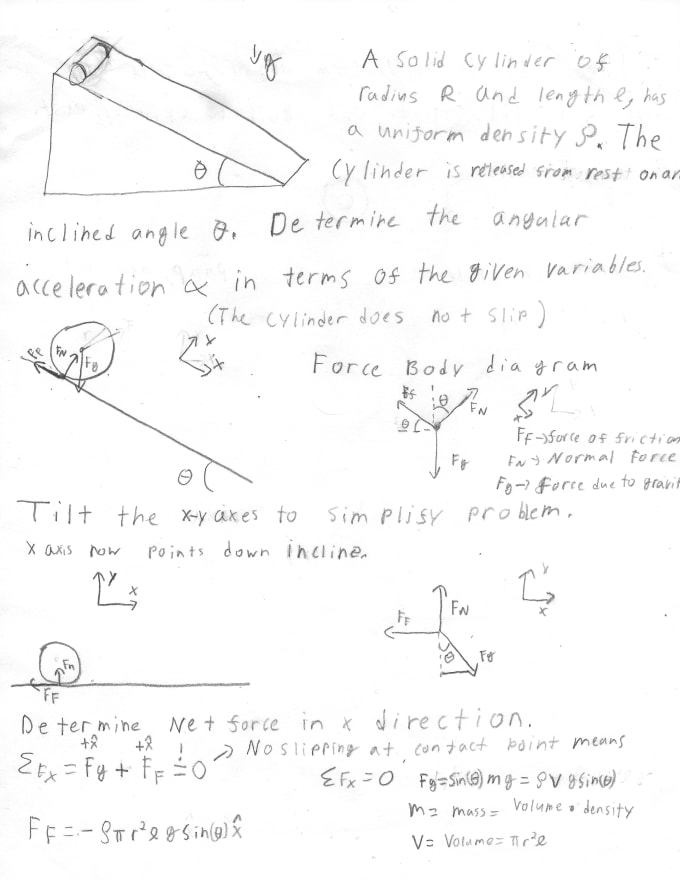 ↓g
A solid cylinder of
radius R and length ℓ, has
a uniform density ρ. The
θ
Cylinder is released from rest on an
inclined angle θ. Determine the angular
acceleration α in terms of the given variables.
(The cylinder does not slip)
FF FN Fg
x
Force Body diagram
θ
Ff θ FN
θ
Fg
FF → force of friction
FN → Normal Force
Fg → force due to gravit
Tilt the x-y axes to simplify problem.
x axis now points down incline.
y x
y x
FF FN
θ Fg
Fn
FF
Determine Net force in x direction.
+x̂ +x̂ !
ΣFx = Fg + FF = 0 → No slipping at contact point means
ΣFx = 0 Fg = sin(θ) mg = ρV g sin(θ)
m = mass = Volume • density
FF = - ρπr²ℓ g sin(θ) x̂
V = Volume = πr²ℓ